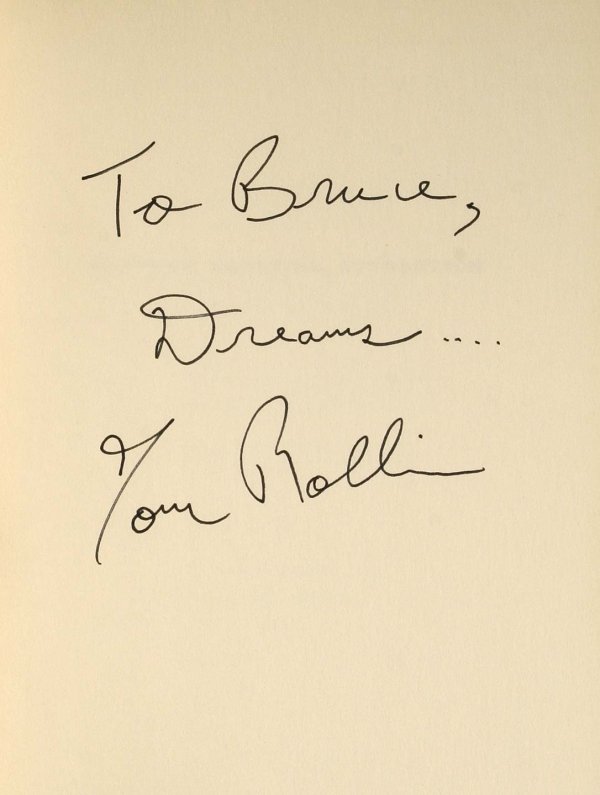 To Bruce,
Dreams ....
Tom Rollin